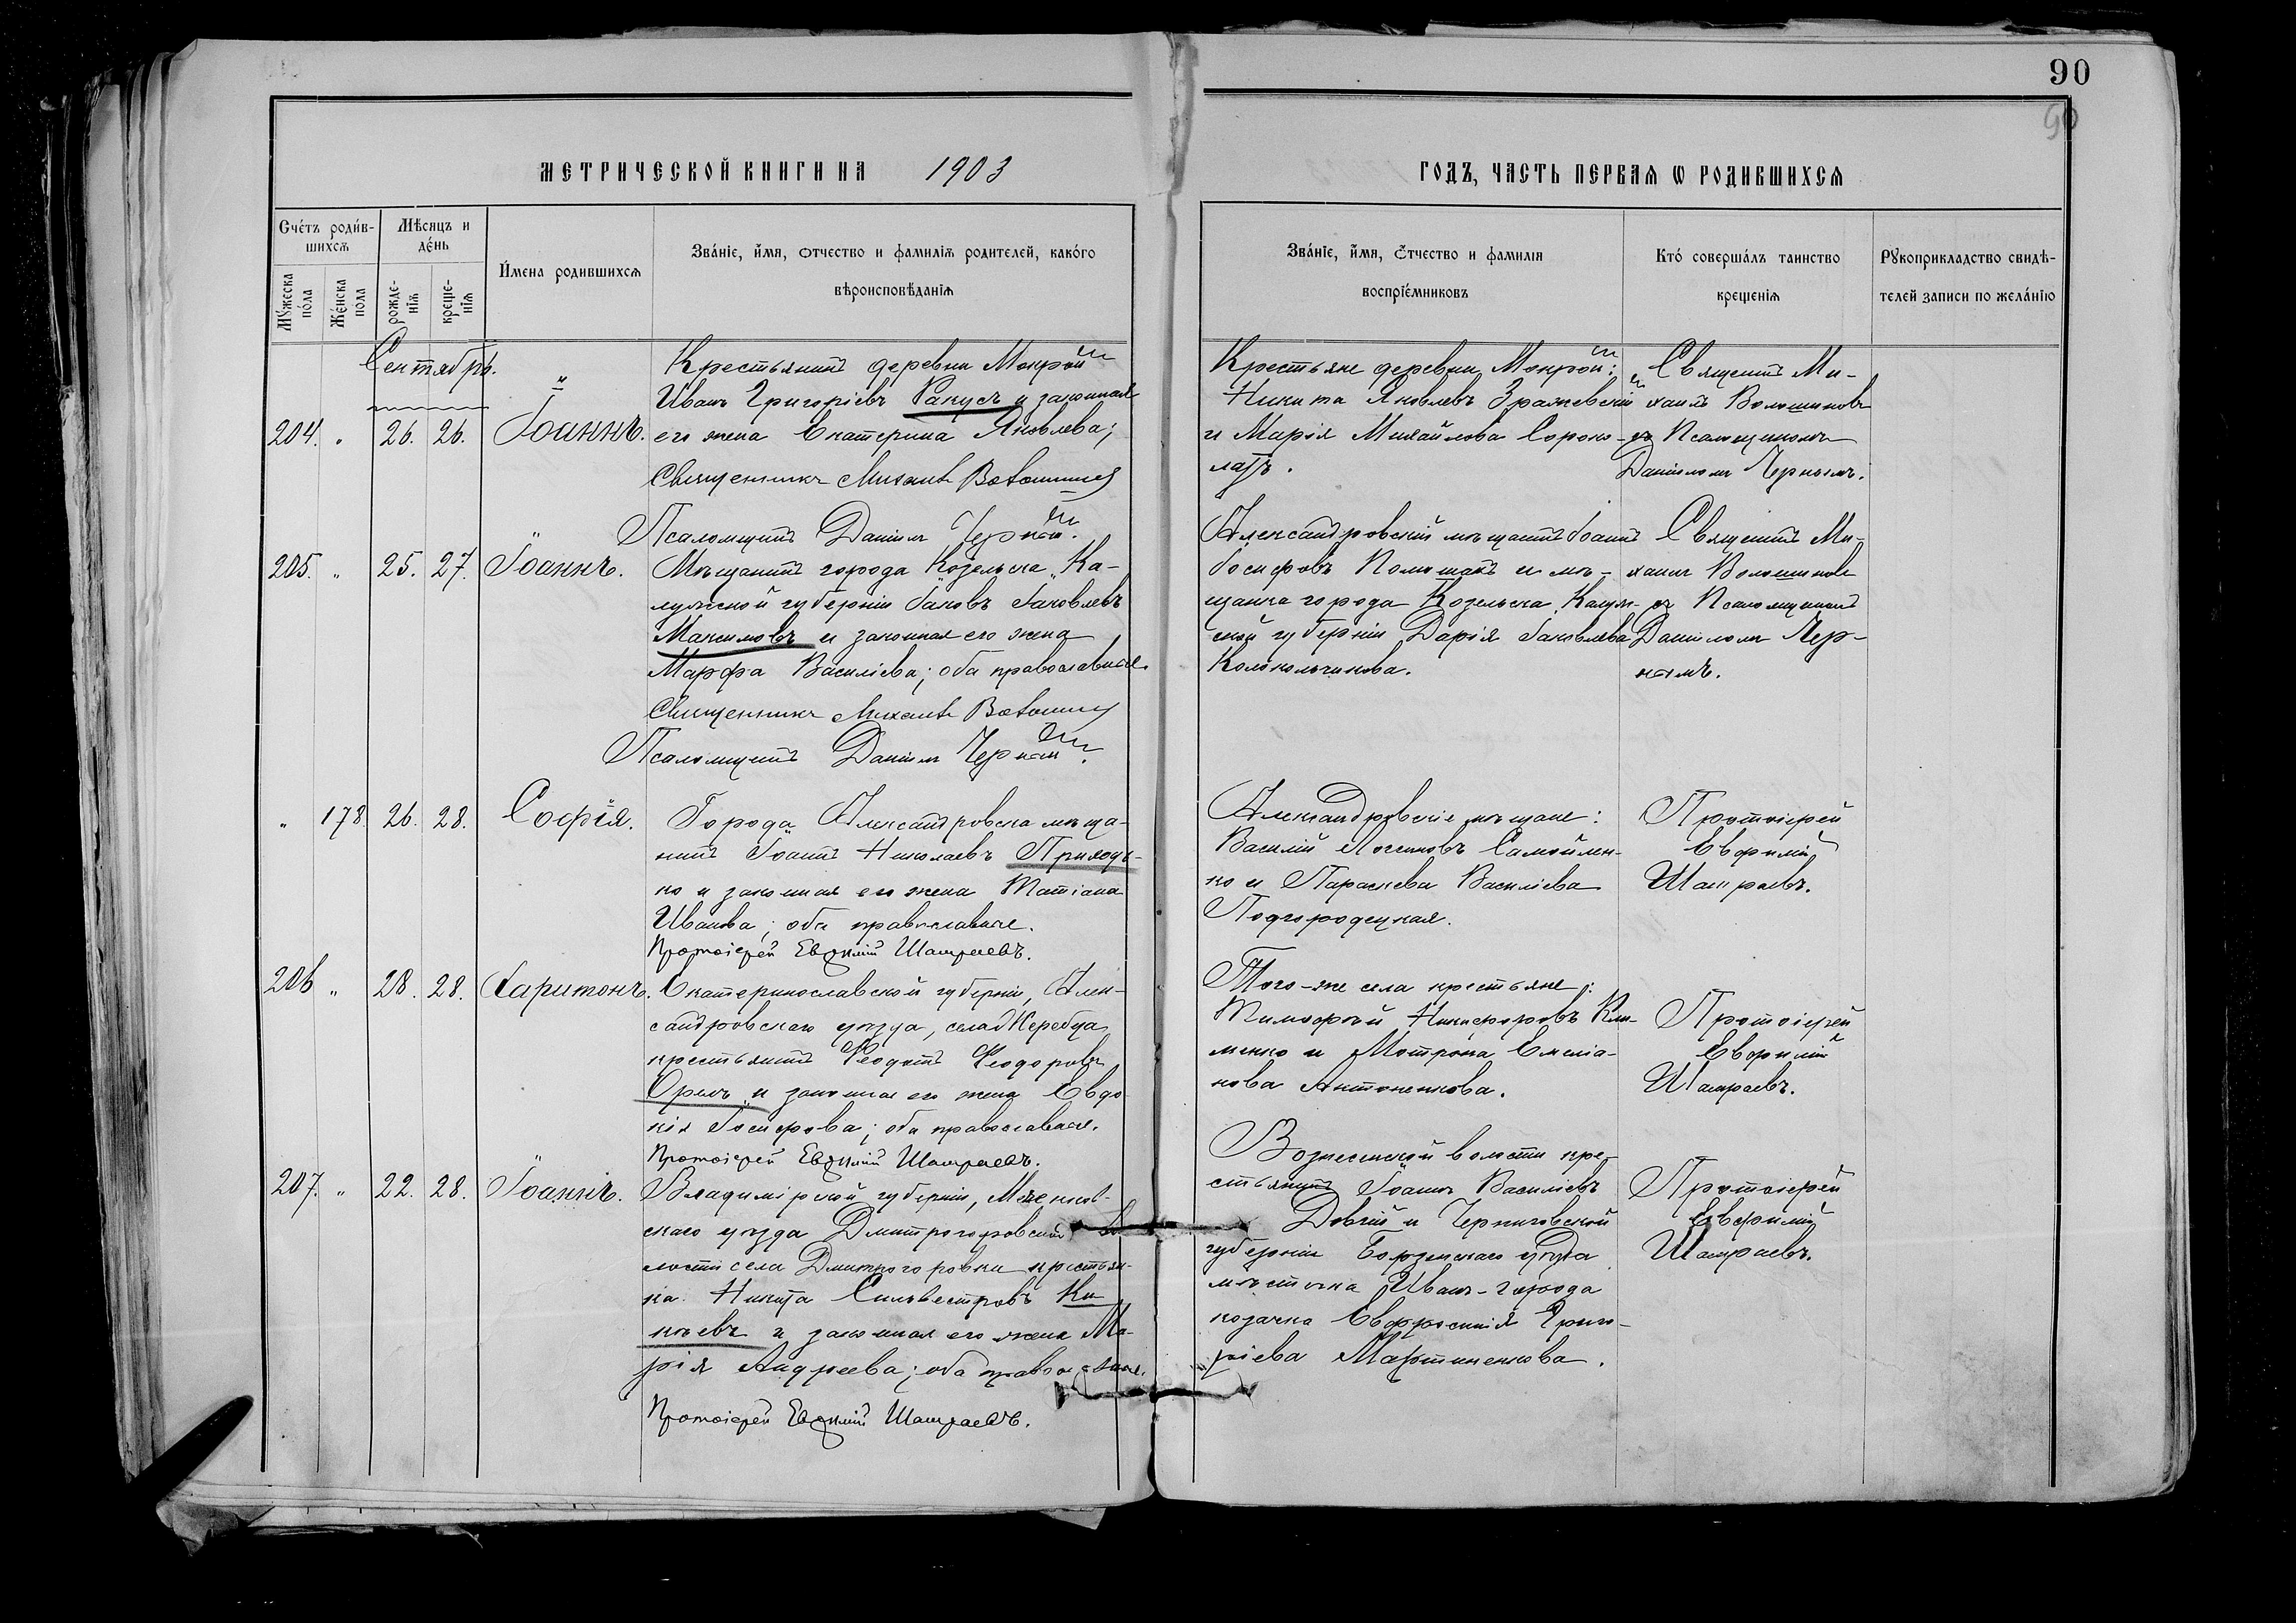 90
90
МЕТРИЧЕСКОЙ КНИГИ НА 1903
ГОДЪ, ЧАСТЬ ПЕРВАЯ Ѡ РОДИВШИХСѦ
Счéтъ роди́вшихсѧ
Мѣсяцъ и дéнь
И́мена родившихсѧ
Звáнїе, и́мя, ѻтчество и фамилїѧ родителей, какóго вѣроисповѣданїѧ
Мꙋжеска пóла
Жéнска пола
рожде-нїѧ
креще-нїѧ
Звáнїе, и́мя, ѻ́тчество и фамилїя воспрїéмниковъ
Ктó совершáлъ таинство крещенїѧ
Рꙋкоприкладство свидѣтелей записи по желáнїю
Сентябрь.
204. " 26. 26. Іоаннъ.
Крестьянинъ деревни Мокрой
Иванъ Григоріевъ Ракусъ и законная
его жена Екатерина Яковлева;
Священникъ Михаилъ Волошиновъ
Псаломщикъ Даніилъ Черный.
Крестьяне деревни Мокрой:
Никита Яковлевъ Зражевскій
и Марія Михайлова Сороко-
латъ.
Священникъ Ми-
хаилъ Волошиновъ
съ Псаломщикомъ
Даніиломъ Чернымъ.
205. " 25. 27. Іоаннъ.
Мѣщанинъ города Козельска, Ка-
лужской губерніи Іаковъ Іаковлевъ
Максимовъ и законная его жена
Марфа Василіева; оба православные.
Священникъ Михаилъ Волошиновъ
Псаломщикъ Даніилъ Черный.
Александровскій мѣщанинъ Іоаннъ
Іосифовъ Поможакъ и мѣ-
щанка города Козельска, Калуж-
ской губерніи, Дарія Іаковлева
Колокольчикова.
Священникъ Ми-
хаилъ Волошиновъ
съ Псаломщикомъ
Даніиломъ Чер-
нымъ.
" 178. 26. 28. Софія.
Города Александровска мѣща-
нинъ Іоаннъ Николаевъ Приходь-
ко и законная его жена Татіана
Иванова; оба православные.
Протоіерей Евѳимій Шамраевъ.
Александровскіе мѣщане:
Василій Логиновъ Самойлен-
ко и Параскева Василіева
Подгородецкая.
Протоіерей
Евфимій
Шамраевъ.
206 " 28. 28. Харитонъ.
Екатеринославской губерніи, Алек-
сандровскаго уѣзда, села Жеребца
крестьянинъ Феодотъ Феодоровъ
Орелъ и законная его жена Евдо-
кія Іосифова; оба православные.
Протоіерей Евѳимій Шамраевъ.
Того-же села крестьяне:
Тимофей Никифоровъ Кли-
менко и Мотрона Емеліа-
нова Антоненкова.
Протоіерей
Евфимій
Шамраевъ.
207. " 22. 28. Іоаннъ.
Владимірской губерніи, Меленков-
скаго уѣзда Дмитрогоровской во-
лости села Дмитрогоровки крестьян-
на Никита Сильвестровъ Ки-
нѣевъ и законная его жена Ма-
рія Андреева; оба православные.
Протоіерей Евѳимій Шамраевъ.
Вознесенской волости кре-
стьянинъ Іоаннъ Василіевъ
Довгій и Черниговской
губерніи Борзенскаго уѣзда
мѣстечка Иванъ-города
козачка Евфросинія Григо-
ріева Мартиненкова.
Протоіерей
Евфимій
Шамраевъ.